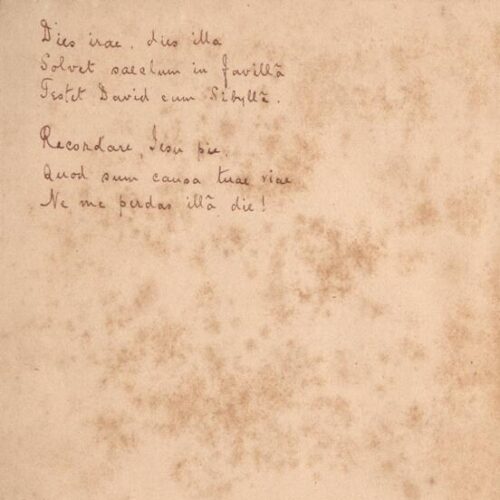 Dies irae, dies illa
Solvet saeclum in favillā
Testet David cum Sibyllā.
Recordare, Iesu pie,
Quod sum causa tuae viae
Ne me perdas illā die!